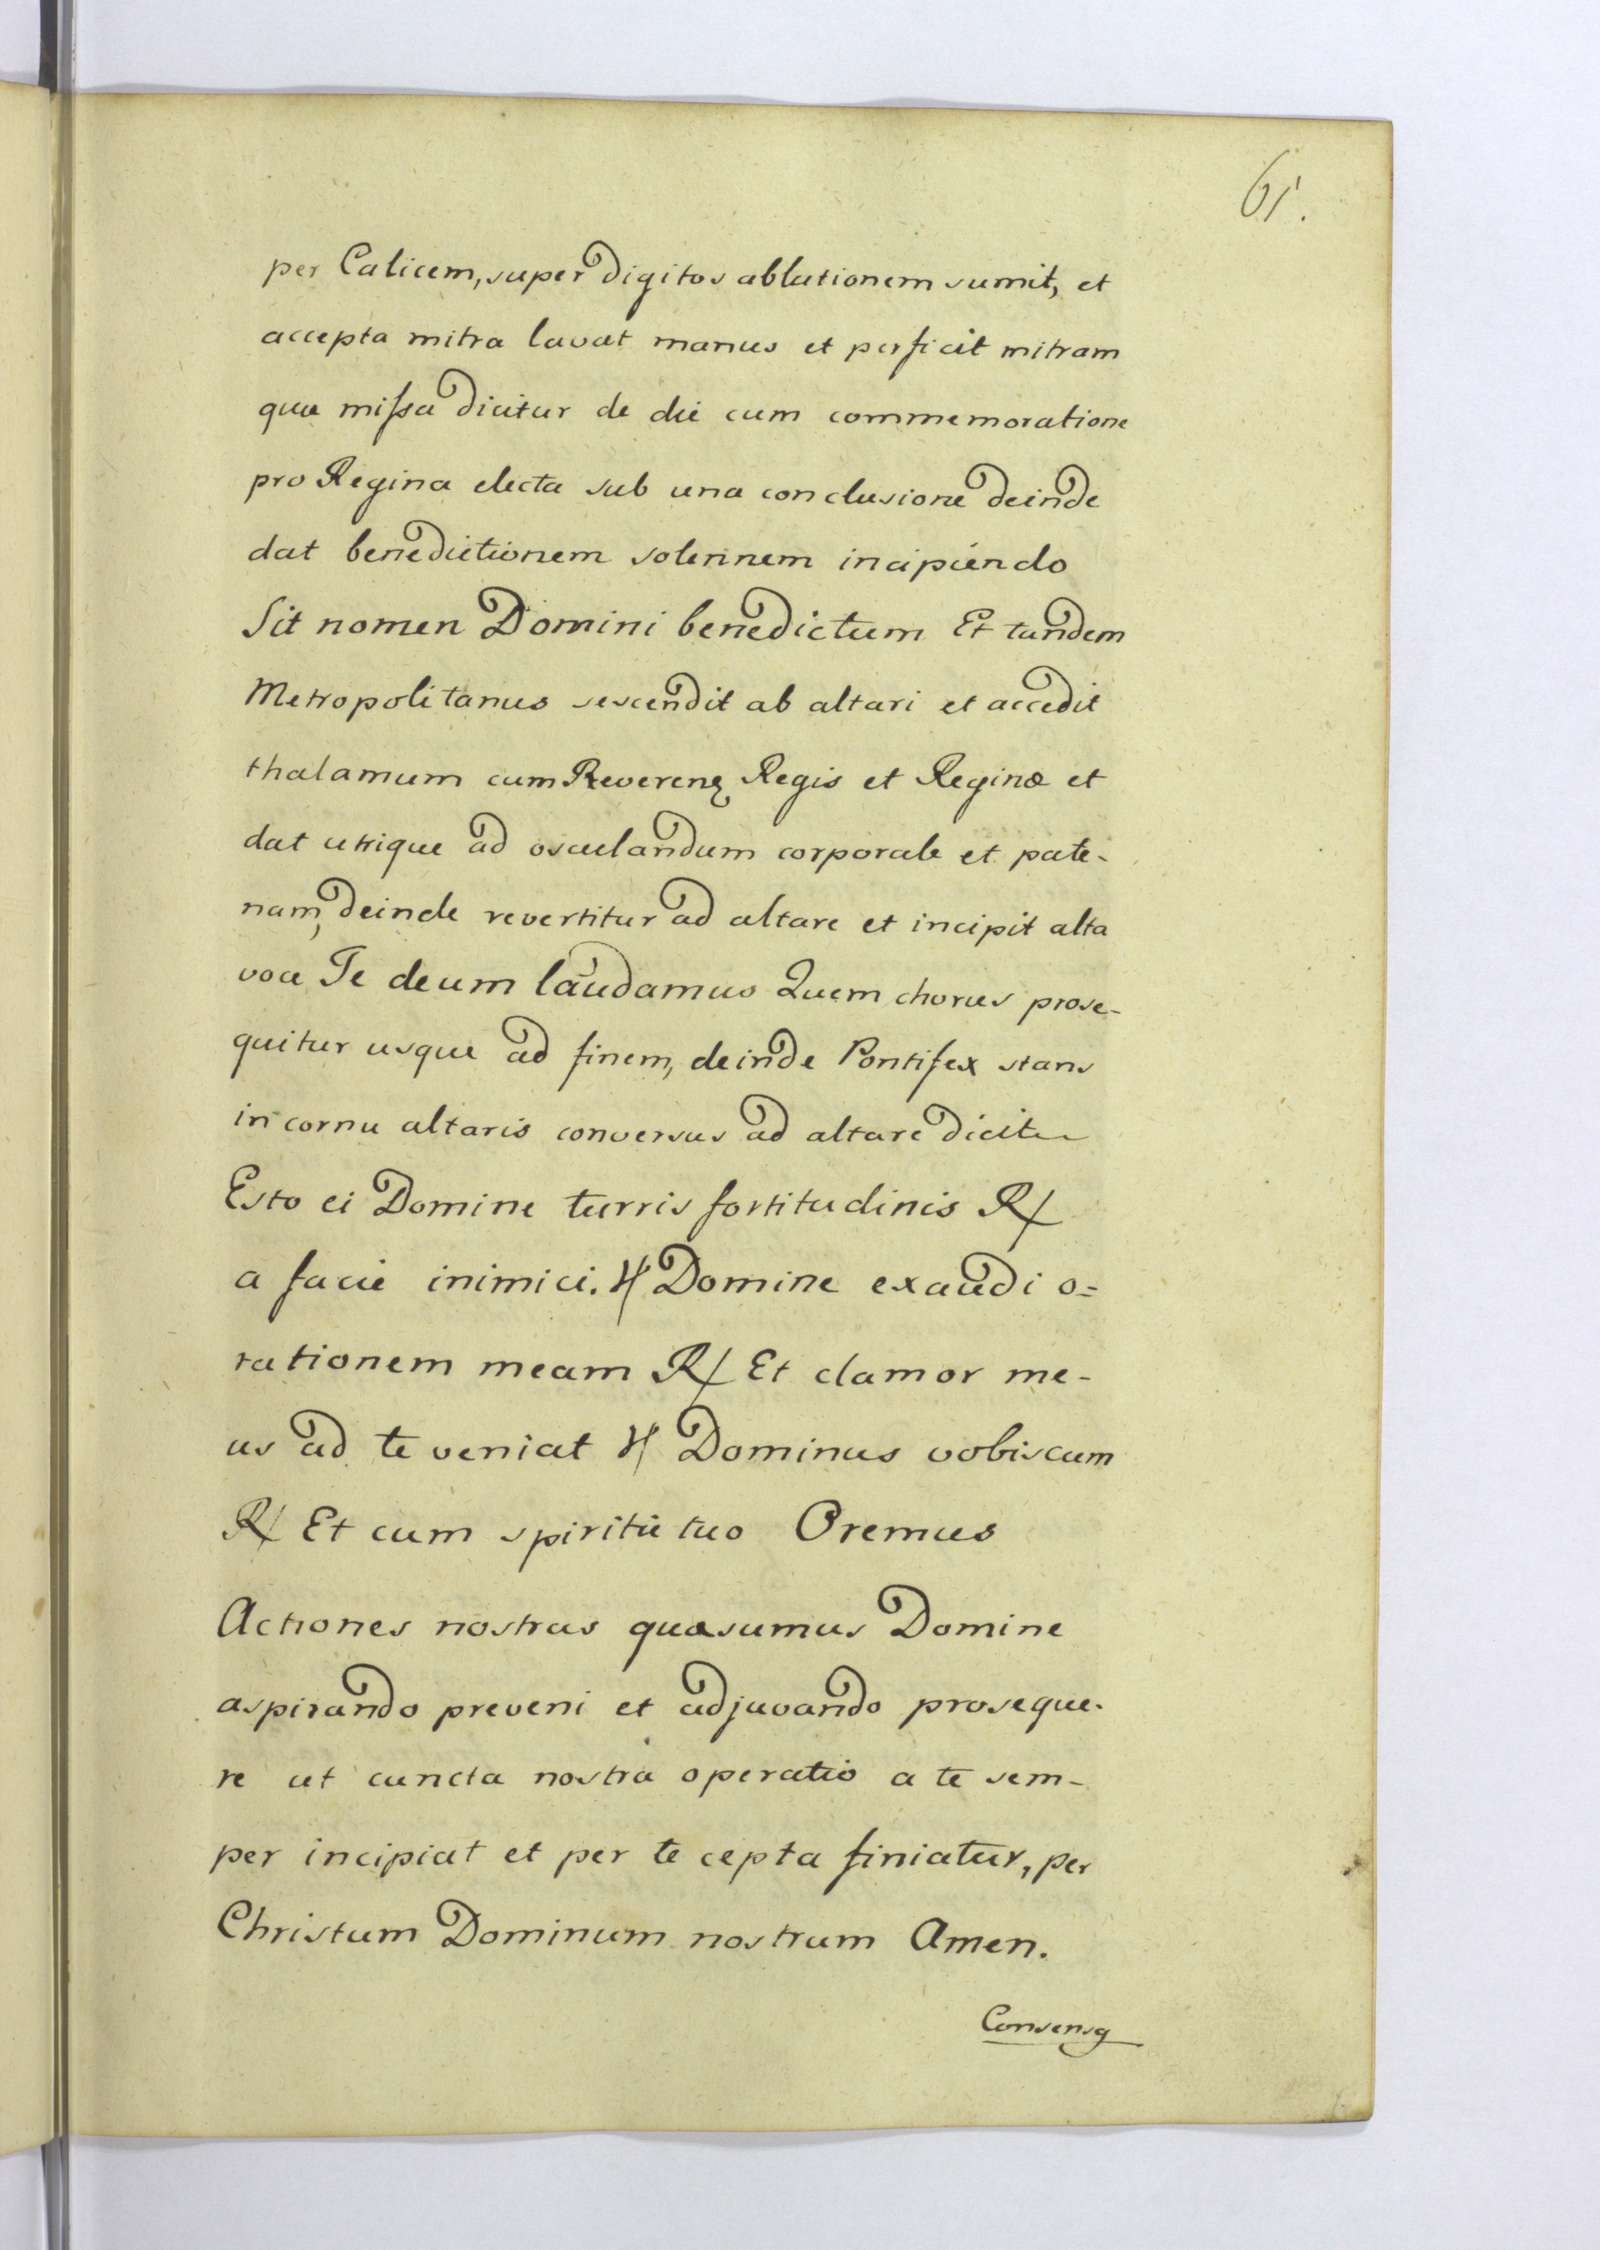 61.
per Calicem, super digitos ablutionem sumit, et
accepta mitra lavat manus et perficit mitram
quæ missa dicitur de die cum commemoratione
pro Regina electa sub una conclusione deinde
dat benedictionem solennem incipiendo
Sit nomen Domini benedictum Et tandem
Metropolitanus sescendit ab altari et accedit
thalamum cum Regis et Reginæ et
dat utrique ad osculandum corporale et pate-
nam, deinde revertitur ad altare et incipit alta
voce Te deum laudamus Quem chorus prose-
quitur usque ad finem, deinde Pontifex stans
in cornu altaris conversus ad altare dicit
Esto ei Domine turris fortitudinis ℟
a facie inimici. ℣ Domine exaudi o=
rationem meam ℟ Et clamor me-
us ad te veniat ℣ Dominus vobiscum
℟ Et cum spiritu tuo Oremus
Actiones nostras quæsumus Domine
aspirando preveni et adjuvando proseque-
re ut cuncta nostra operatio a te sem-
per incipiat et per te cepta finiatur, per
Christum Dominum nostrum Amen.
Consensq